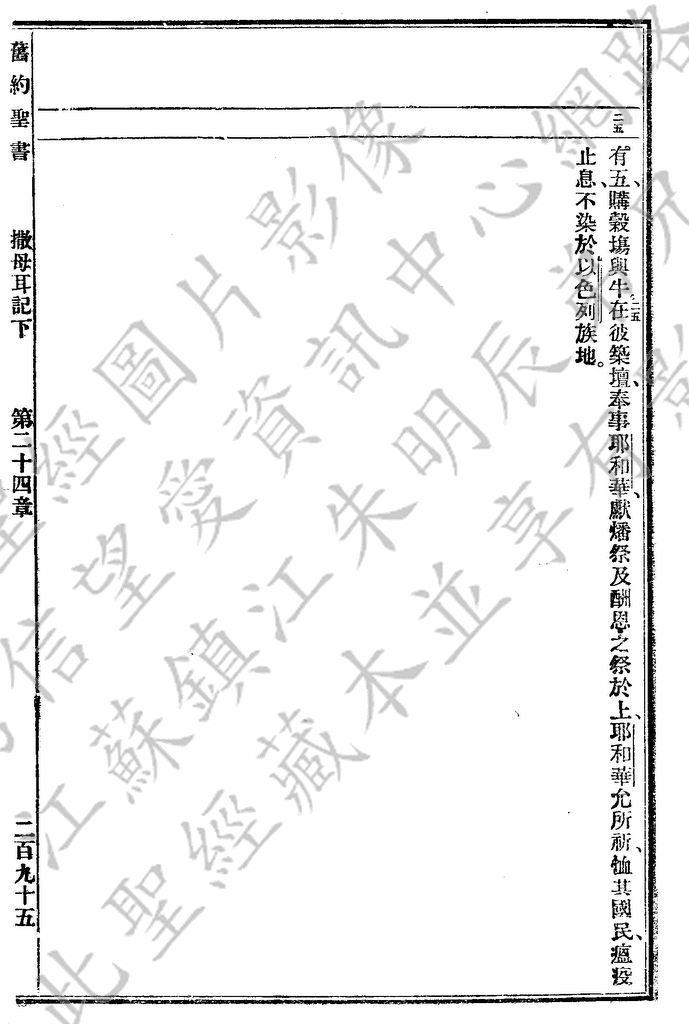 二五
有五、購穀塲與牛、在彼築壇、奉事耶和華、獻燔祭及酬恩之祭於上、耶和華允所祈、恤其國民、瘟疫
二五
止息、不染於以色列族地。
舊約聖書 撒母耳記下 第二十四章 二百九十五
聖經圖片影像
信望愛資訊中心網路
江蘇鎮江朱明辰弟兄
此聖經藏本並享有影